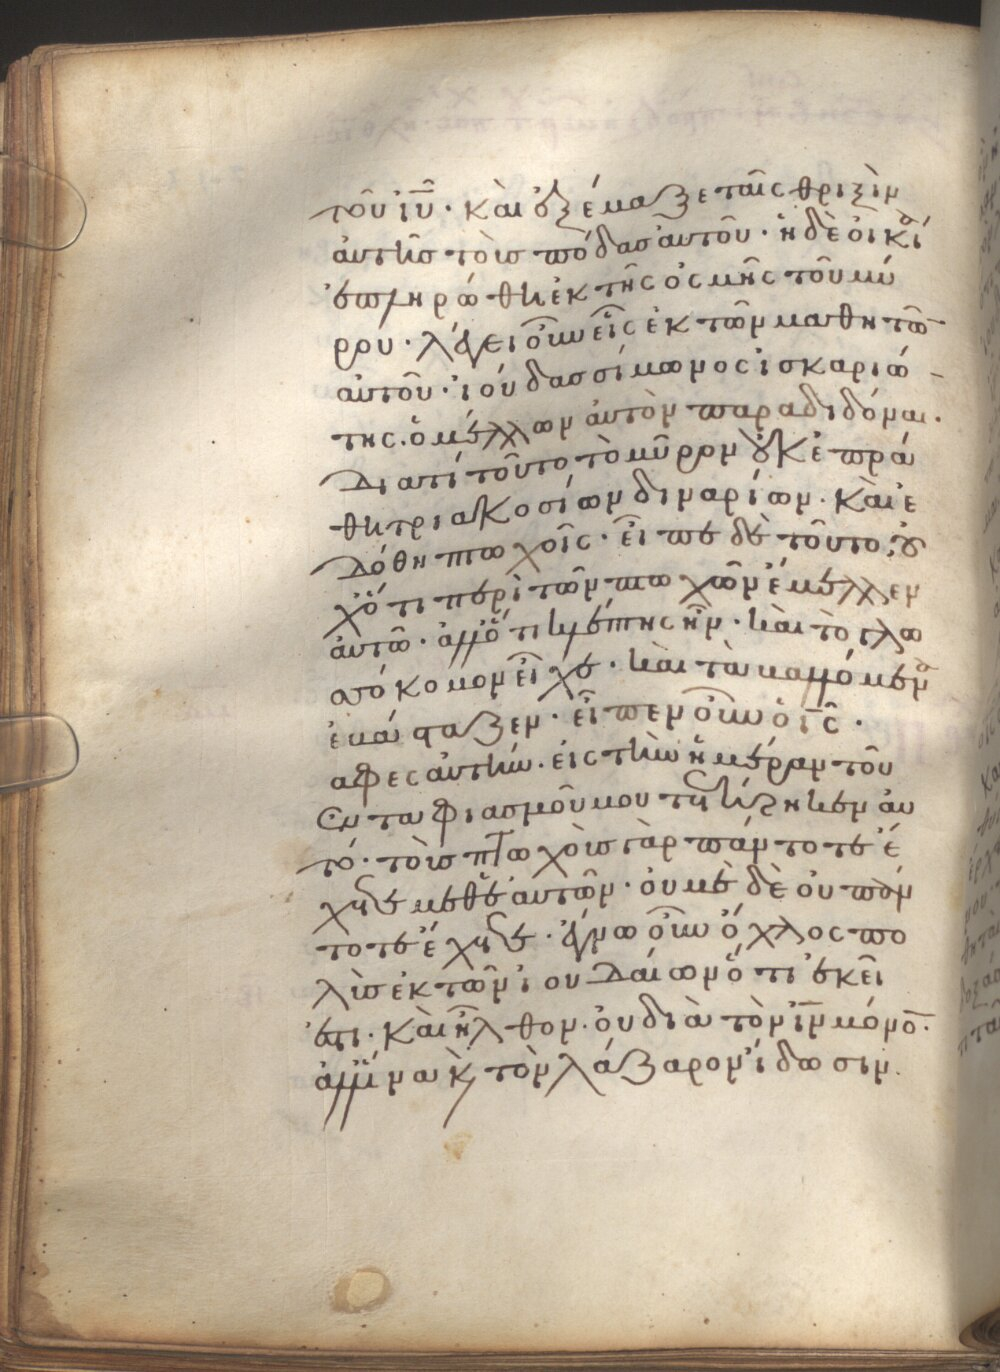 τοῦ ἰῦ· καὶ ἐξέμαξε ταῖς θριξὶν
ἁυτῆσ τοὺσ πόδασ ἀυτοῦ· ἡ δὲ ὀικί
ἐπληρώθη ἐκ τῆς ὀσμῆς τοῦ μύ
ρου· λέγει οὖν εἷς ἐκ τῶν μαθητῶ
ἀυτοῦ· ἰούδασ σίμωνος ἰσκαριώ
της. ὁ μέλλων ἀυτὸν παραδιδόναι.
Διατί τοῦτο τὸ μῦρον ὀυκ ἐπρά
θη τριακοσίων διναρίων. καὶ ἐ
δόθη πτωχοῖς· εἶπε δὲ τοῦτο, ὀυ
χ ὅτι περὶ τῶν πτωχῶν ἔμελλεν
ἀυτῶ· ἀλλ ὅτι κλέπτης ἦν· καὶ τὸ γλω
σσόκομον εἶχε· καὶ τὰ βαλλόμενα
ἐβάσταζεν· εἶπεν οὖν ὁ ις·
αφες ἀυτὴν· ἐις τὴν ἡμέραν τοῦ
ἐνταφιασμοῦ μου τετήρηκεν ἀυ
τό· τοὺσ πτωχοὺσ γὰρ πάντοτε ἔ
χετε μεθ ἑαυτῶν· ὀυ μὲ δὲ ὀυ πάν
τοτε ἔχετε· ἔγνω οὖν ὄχλος πο
λὺσ ἐκ τῶν ἰουδαίων ὅτι ἐκεῖ
ἐστι· καὶ ἦλθον· ὀυ διὰ τὸν ἰν μόνο·
ἀλλ ἵνα κ τὸν λάζαρον ἴδωσιν.